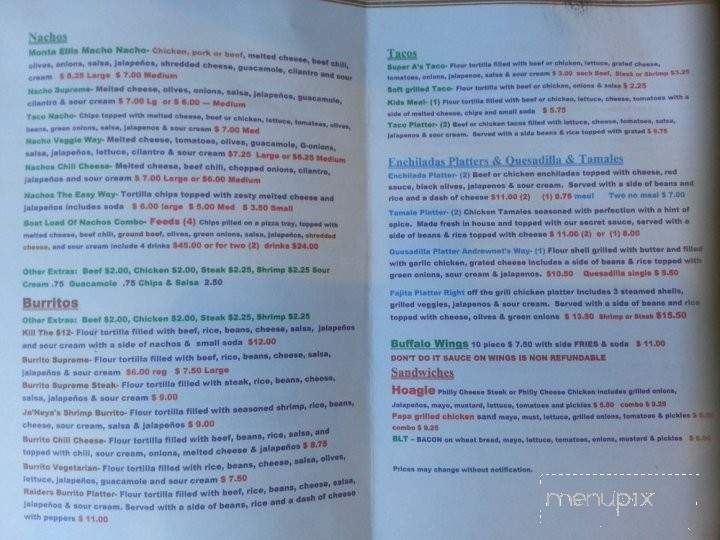 Nachos
Monta Ellis Macho Nacho- Chicken, pork or beef, melted cheese, beef chili,
olives, onions, salsa, jalapeños, shredded cheese, guacamole, cilantro and sour
cream $ 8.25 Large $ 7.00 Medium
Nacho Supreme- Melted cheese, olives, onions, salsa, jalapeños, guacamole,
cilantro & sour cream $ 7.00 Lg or $ 6.00 — Medium
Taco Nacho- Chips topped with melted cheese, beef or chicken, lettuce, tomatoes, olives,
beans, green onions, salsa, jalapenos & sour cream $ 7.00 Med
Nacho Veggie Way- Melted cheese, tomatoes, olives, guacamole, G-onions,
salsa, jalapeños, lettuce, cilantro & sour cream $7.25 Large or $6.25 Medium
Nachos Chili Cheese- Melted cheese, beef chili, chopped onions, cilantro,
jalapeños and sour cream $ 7.00 Large or $6.00 Medium
Nachos The Easy Way- Tortilla chips topped with zesty melted cheese and
jalapeños includes soda $ 6.00 large $ 5.00 Med $ 3.50 Small
Boat Load Of Nachos Combo- Feeds (4) Chips pilled on a pizza tray, topped with
melted cheese, beef chili, ground beef, olives, green onions, salsa, jalapeños, shredded
cheese, and sour cream include 4 drinks $45.00 or for two (2) drinks $24.00
Other Extras: Beef $2.00, Chicken $2.00, Steak $2.25, Shrimp $2.25 Sour
Cream .75 Guacamole .75 Chips & Salsa 2.50
Burritos
Other Extras: Beef $2.00, Chicken $2.00, Steak $2.25, Shrimp $2.25
Kill The $12- Flour tortilla filled with beef, rice, beans, cheese, salsa, jalapeños
and sour cream with a side of nachos & small soda $12.00
Burrito Supreme- Flour tortilla filled with beef, rice, beans, cheese, salsa,
jalapeños & sour cream $6.00 reg $ 7.50 Large
Burrito Supreme Steak- Flour tortilla filled with steak, rice, beans, cheese,
salsa, jalapeños & sour cream $ 9.00
Ja'Neya's Shrimp Burrito- Flour tortilla filled with seasoned shrimp, rice, beans,
cheese, sour cream, salsa & jalapeños $ 9.00
Burrito Chili Cheese- Flour tortilla filled with beef, beans, rice, salsa, and
topped with chili, sour cream, onions, melted cheese & jalapeños $ 8.75
Burrito Vegetarian- Flour tortilla filled with rice, beans, cheese, salsa, olives,
lettuce, jalapeños, guacamole and sour cream $ 7.50
Raiders Burrito Platter- Flour tortilla filled with beef, rice, beans, cheese, salsa,
jalapeños & sour cream. Served with a side of beans, rice and a dash of cheese
with peppers $ 11.00
Tacos
Super A's Taco- Flour tortilla filled with beef or chicken, lettuce, grated cheese,
tomatoes, onions, jalapenos, salsa & sour cream $ 3.00 each Beef, Steak or Shrimp $3.25
Soft grilled Taco- Flour tortilla with beef or chicken, onions & salsa $ 2.25
Kids Meal- (1) Flour tortilla filled with beef or chicken, lettuce, cheese, tomatoes with a
side of melted cheese, chips and small soda $ 5.75
Taco Platter- (2) Beef or chicken tacos filled with lettuce, cheese, tomatoes, salsa,
jalapenos & sour cream. Served with a side beans & rice topped with grated $ 9.75
Enchiladas Platters & Quesadilla & Tamales
Enchilada Platter- (2) Beef or chicken enchiladas topped with cheese, red
sauce, black olives, jalapenos & sour cream. Served with a side of beans and
rice and a dash of cheese $11.00 (2) (1) 8.75 meal Two no meal $ 7.00
Tamale Platter- (2) Chicken Tamales seasoned with perfection with a hint of
spice. Made fresh in house and topped with our secret sauce, served with a
side of beans & rice topped with cheese $ 11.00 (2) or (1) 8.00
Quesadilla Platter Andrewnet's Way- (1) Flour shell grilled with butter and filled
with garlic chicken, grated cheese includes a side of beans & rice topped with
green onions, sour cream & jalapenos. $10.50 Quesadilla single $ 5.50
Fajita Platter Right off the grill chicken platter Includes 3 steamed shells,
grilled veggies, jalapenos & sour cream. Served with a side of beans and rice
topped with cheese, olives & green onions $ 13.50 Shrimp or Steak $15.50
Buffalo Wings 10 piece $ 7.50 with side FRIES & soda $ 11.00
DON'T DO IT SAUCE ON WINGS IS NON REFUNDABLE
Sandwiches
Hoagie Philly Cheese Steak or Philly Cheese Chicken includes grilled onions,
Jalapeños, mayo, mustard, lettuce, tomatoes and pickles $ 6.50 combo $ 9.25
Papa grilled chicken sand mayo, must, lettuce, grilled onions, tomatoes & pickles $
combo $ 9.25
BLT – BACON on wheat bread, mayo, lettuce, tomatoes, onions, mustard & pickles $
Prices may change without notification.
menupix